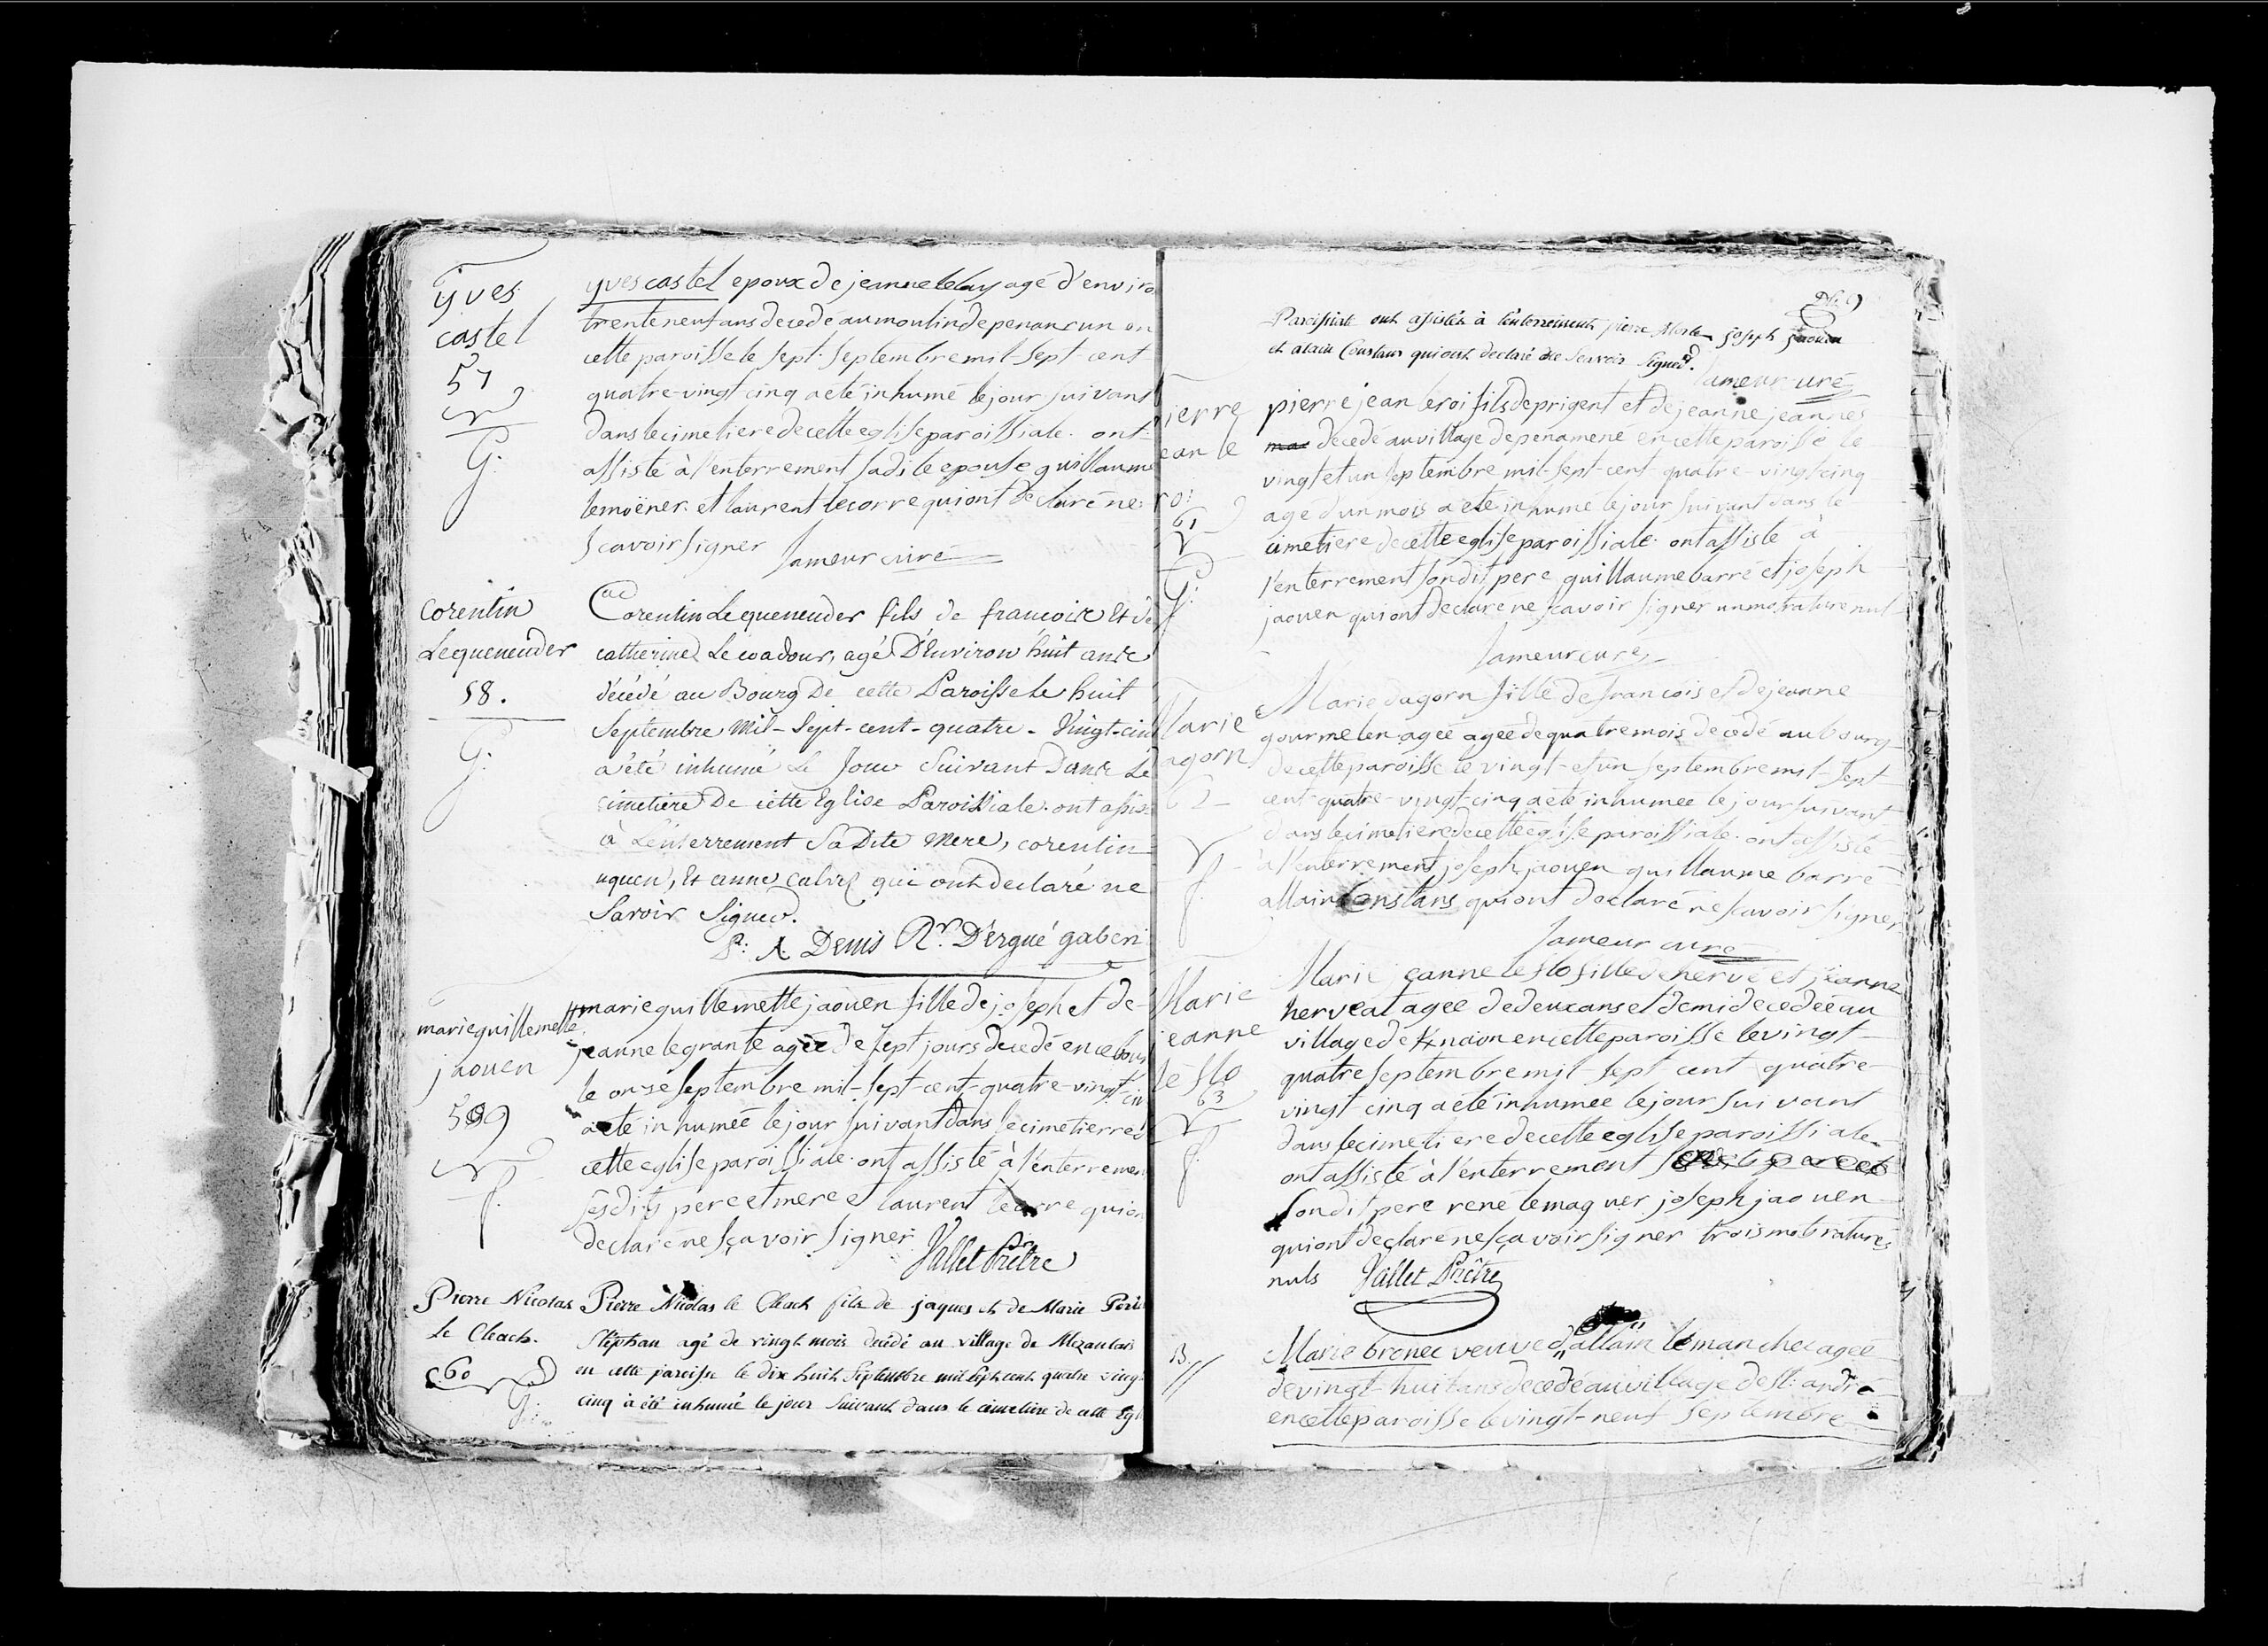 yves
castel
57
G:
yves castel epoux de jeanne le lay agé d'enviro
trente neuf ans decedé au moulin de penanrun en
cette paroisse le sept septembre mil-sept-cent
quatre-vingt cinq a été inhumé le jour suivant
dans le cimetiere de cette eglise paroissiale. ont
assisté à l'enterrement sadite epouse guillaume
lemoëner et laurent lecorre qui ont declaré ne
scavoir signer
Jameur curé
Corentin
Lequeneuder
58.
G:
Corentin Lequeneuder fils de francois Et de
catherine Le coadour, agé D'Environ huit ans
décédé au Bourg De cette Paroisse le huit
Septembre Mil-Sept-cent-quatre-Vingt-cin
a été inhumé Le Jour Suivant Dans Le
cimetiere De cette Eglise Paroissiale. ont assis
à L'enterrement SaDite Mere, corentin
uguen, Et anne calvez qui ont declaré ne
Savoir Signer.
A. Denis Rr. D'ergué gaberi
marie guillemette
jaouen
59
f.
marie guillemette jaouen fille de joseph et de
jeanne le grante agée de sept jours decedé en ce bour
le onze septembre mil-sept-cent-quatre-vingt-cin
a eté inhumée le jour suivant dans le cimetierre d
cette eglise paroissiale. ont assisté à l'enterremen
sesdits pere et mere et laurent le corre qui on
declaré ne sçavoir signer
Vallet Prêtre
Pierre Nicolas
Le Cleach.
60
G:
Pierre Nicolas le Cleach fils de jaques et de Marie
Stéphan agé de vingt mois decédé au village de Mezanlais
en cette paroisse le dix huit Septembre mil sept cent quatre ving
cinq a été inhumé le jour Suivant dans le cimetiere de cette Egl
Paroissiale ont assistés à l'enterrement pierre joseph jaouen
et alain Constans qui ont declaré ne Scavoir Signer.
Jameur curé
ierre
ean le
roi
61
G:
pierre jean le roi fils de prigent et de jeanne jeannes
decedé au village de penamené en cette paroisse le
vingt et un septembre mil-sept-cent quatre-vingt cinq
agé d'un mois a été inhumé le jour suivant dans le
cimetiere de cette eglise paroissiale. ont assisté à
l'enterrement sondit pere guillaume barré et joseph
jaouen qui ont declaré ne scavoir signer un mot raturé nul
Jameur curé
Marie
agorn
62
f.
Marie dagorn fille de francois et de jeanne
gourmelen agée agée de quatre mois decedé au bourg
de cette paroisse le vingt-et un septembre mil-sept
cent-quatre-vingt-cinq a été inhumée le jour suivant
dans le cimetiere de cette eglise paroissiale. ont assisté
à l'enterrement joseph jaouen guillaume barré
allain Constans qui ont declaré ne scavoir signer
Jameur curé
Marie
jeanne
le flo
63
f.
Marie jeanne le flo fille de hervé et jeanne
herveat agée de deux ans et demi decedée au
village de Knaon en cette paroisse le vingt
quatre septembre mil sept cent quatre
vingt cinq a été inhumée le jour suivant
dans le cimetiere de cette eglise paroissiale
ont assisté à l'enterrement
sondit pere rené le maguer joseph jaouen
qui ont declaré ne sçavoir signer trois mots raturés
nuls Vallet Prêtre
B.
Marie brenec veuve d'allain le manchec agée
de vingt-huit ans decedé au village de st: andré
en cette paroisse le vingt-neuf septembre